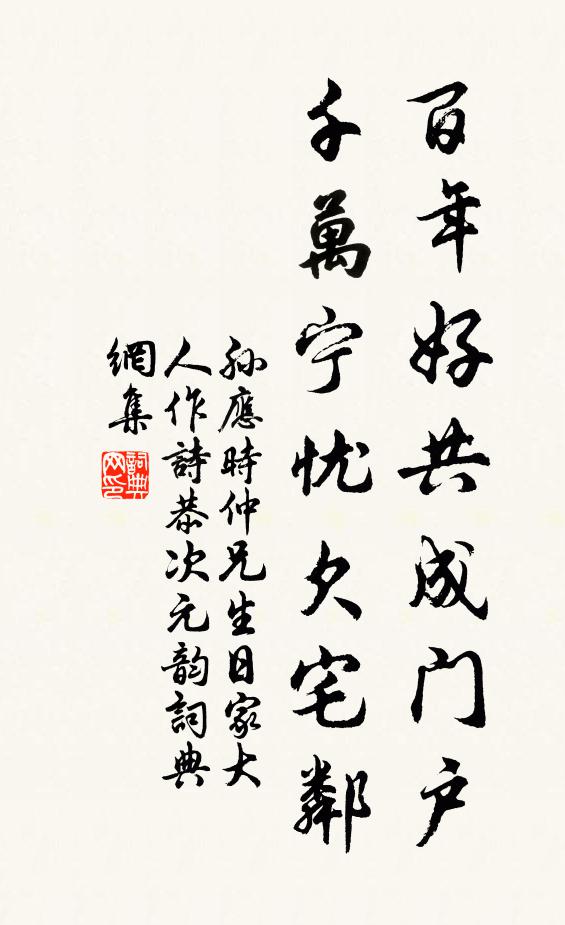 百年好共成门户
千萬宁忧欠宅鄰
孙應時仲兄生日家大
人作詩恭次元韵詞典
網集
詞典
网印